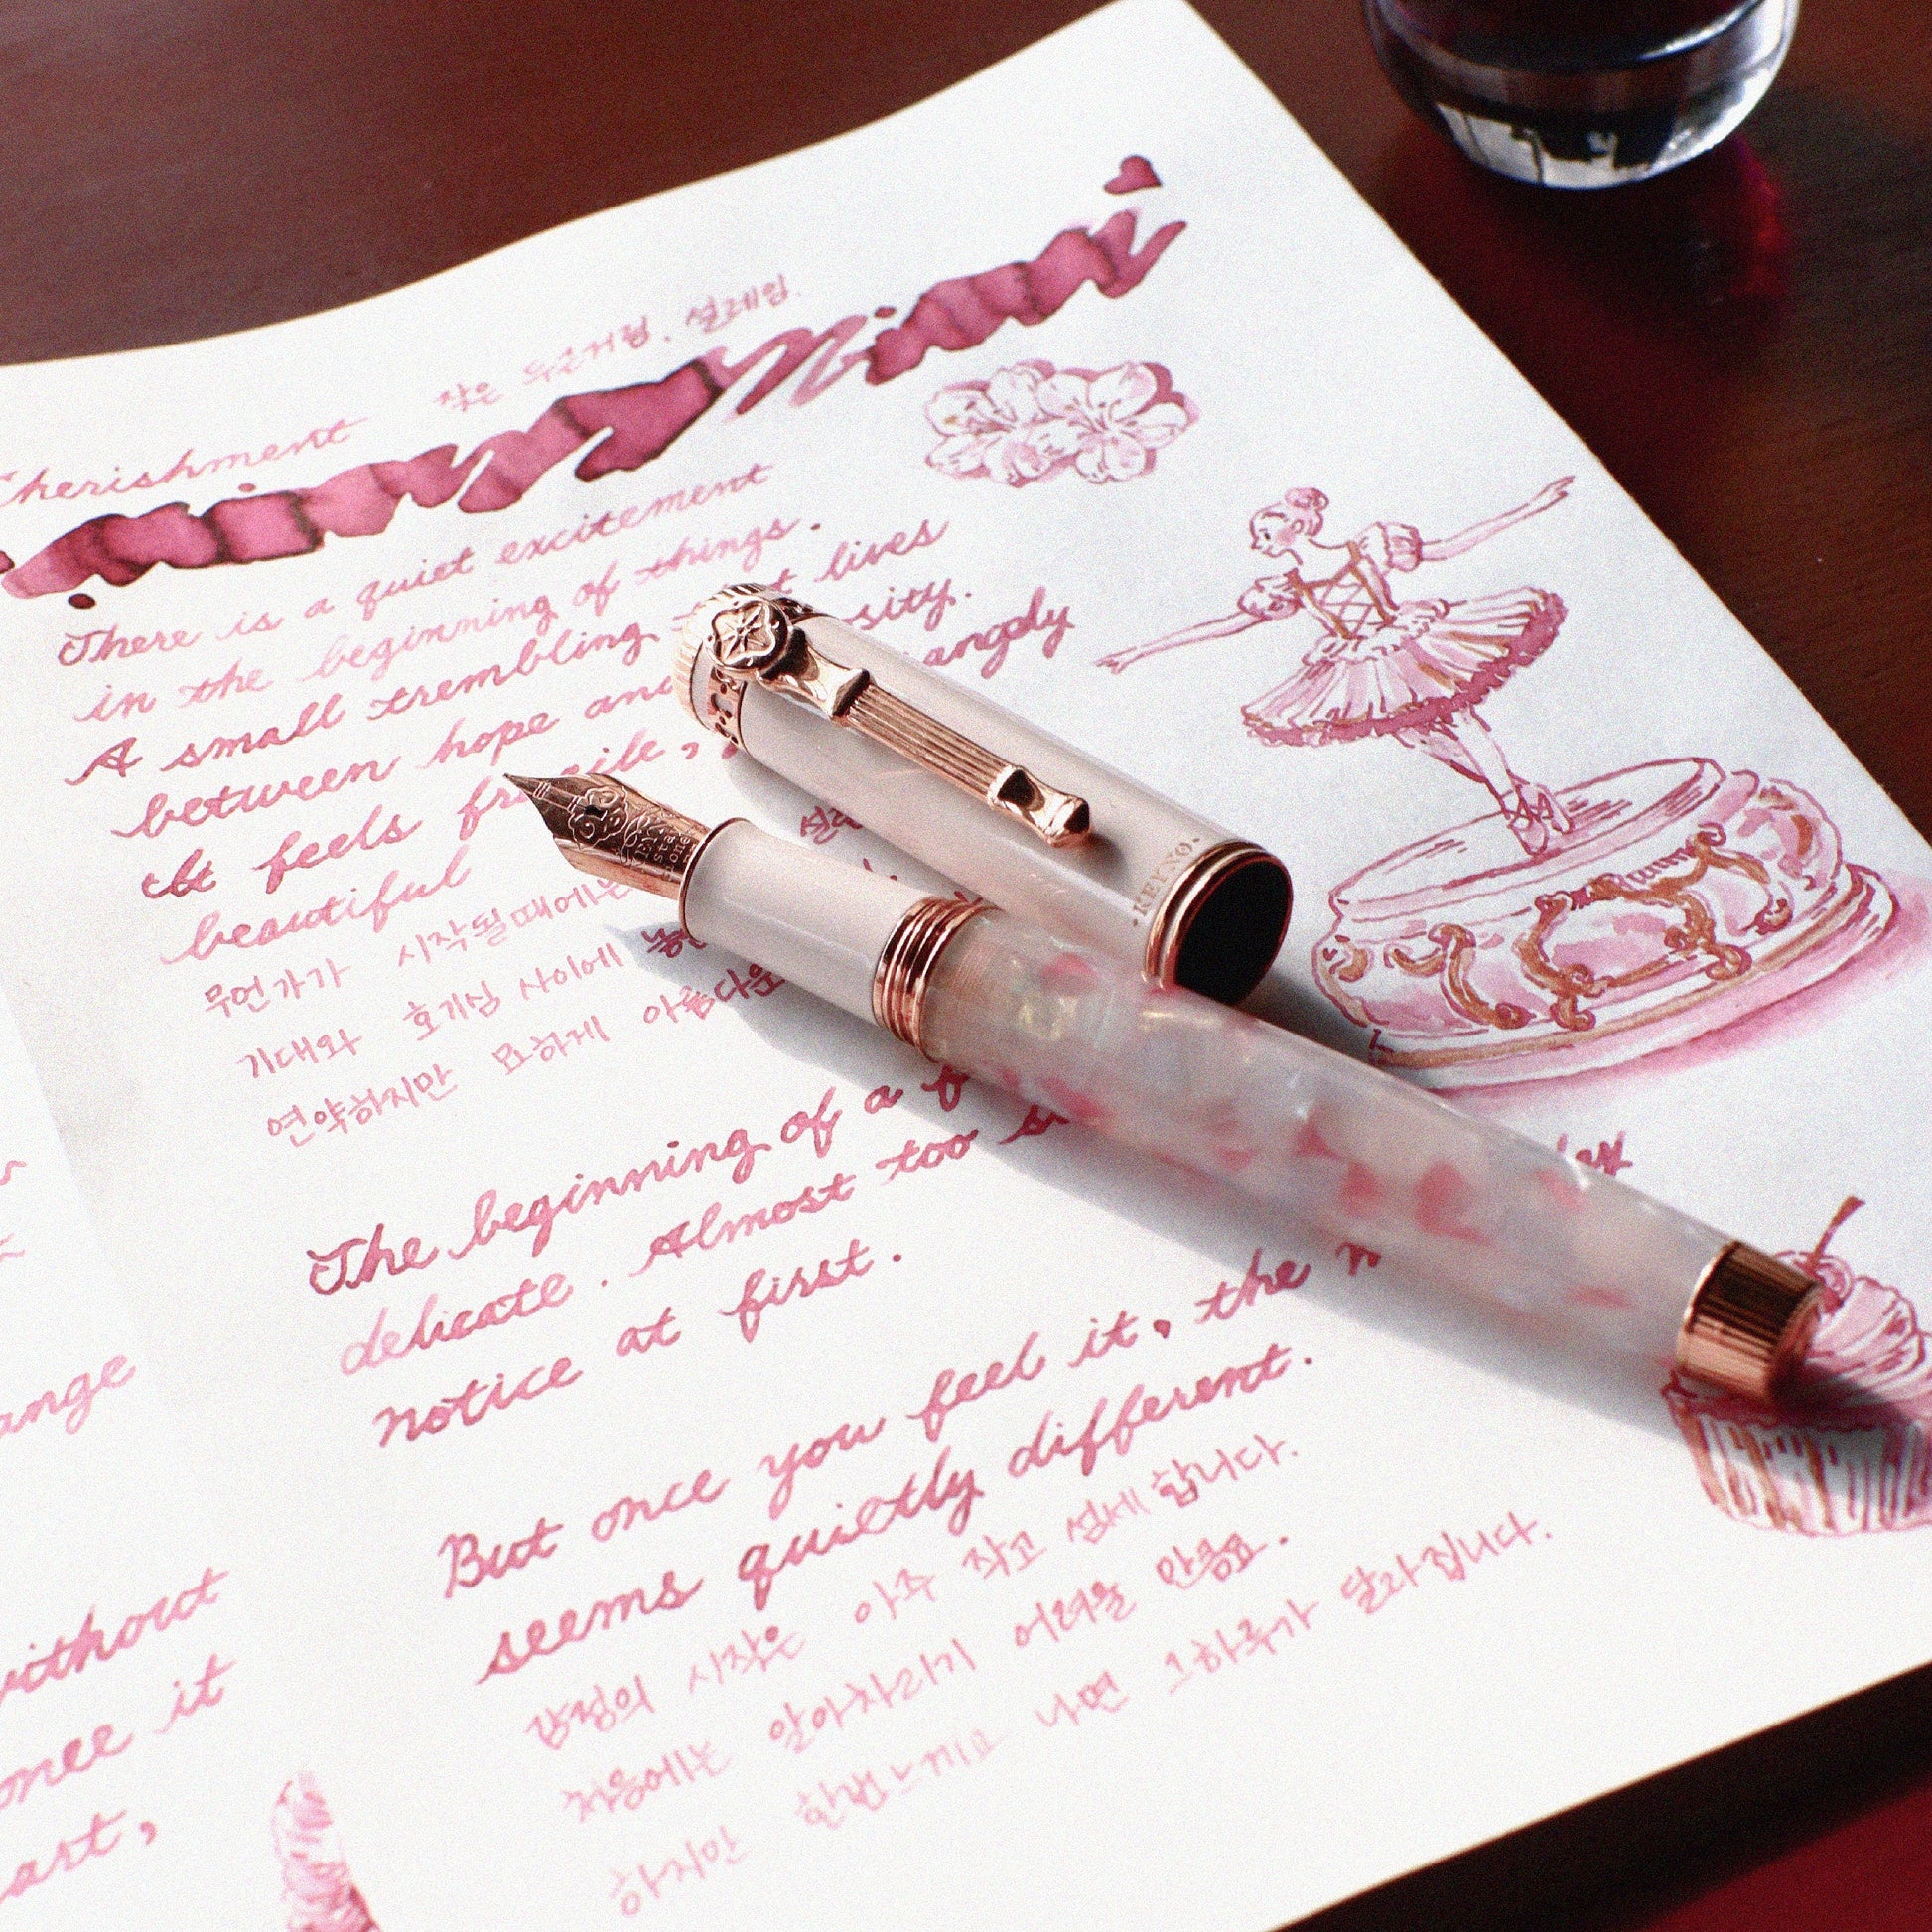 Cherishment
작은 두근거림, 설레임.
There is a quiet excitement
in the beginning of things.
A small trembling lives
between hope and
It feels
beautiful
무언가가 시작될때에는
기대와 호기심 사이에
연약하지만 묘하게 아름다운
KEYXO.
The beginning of a
delicate. Almost too
notice at first.
But once you feel it, the
seems quietly different.
감정의 시작은 아주 작고 섬세합니다.
처음에는 알아차리기 어려울 만큼요.
하지만 한번 느끼고 나면 그하루가 달라집니다.
ange
without
once it
art,